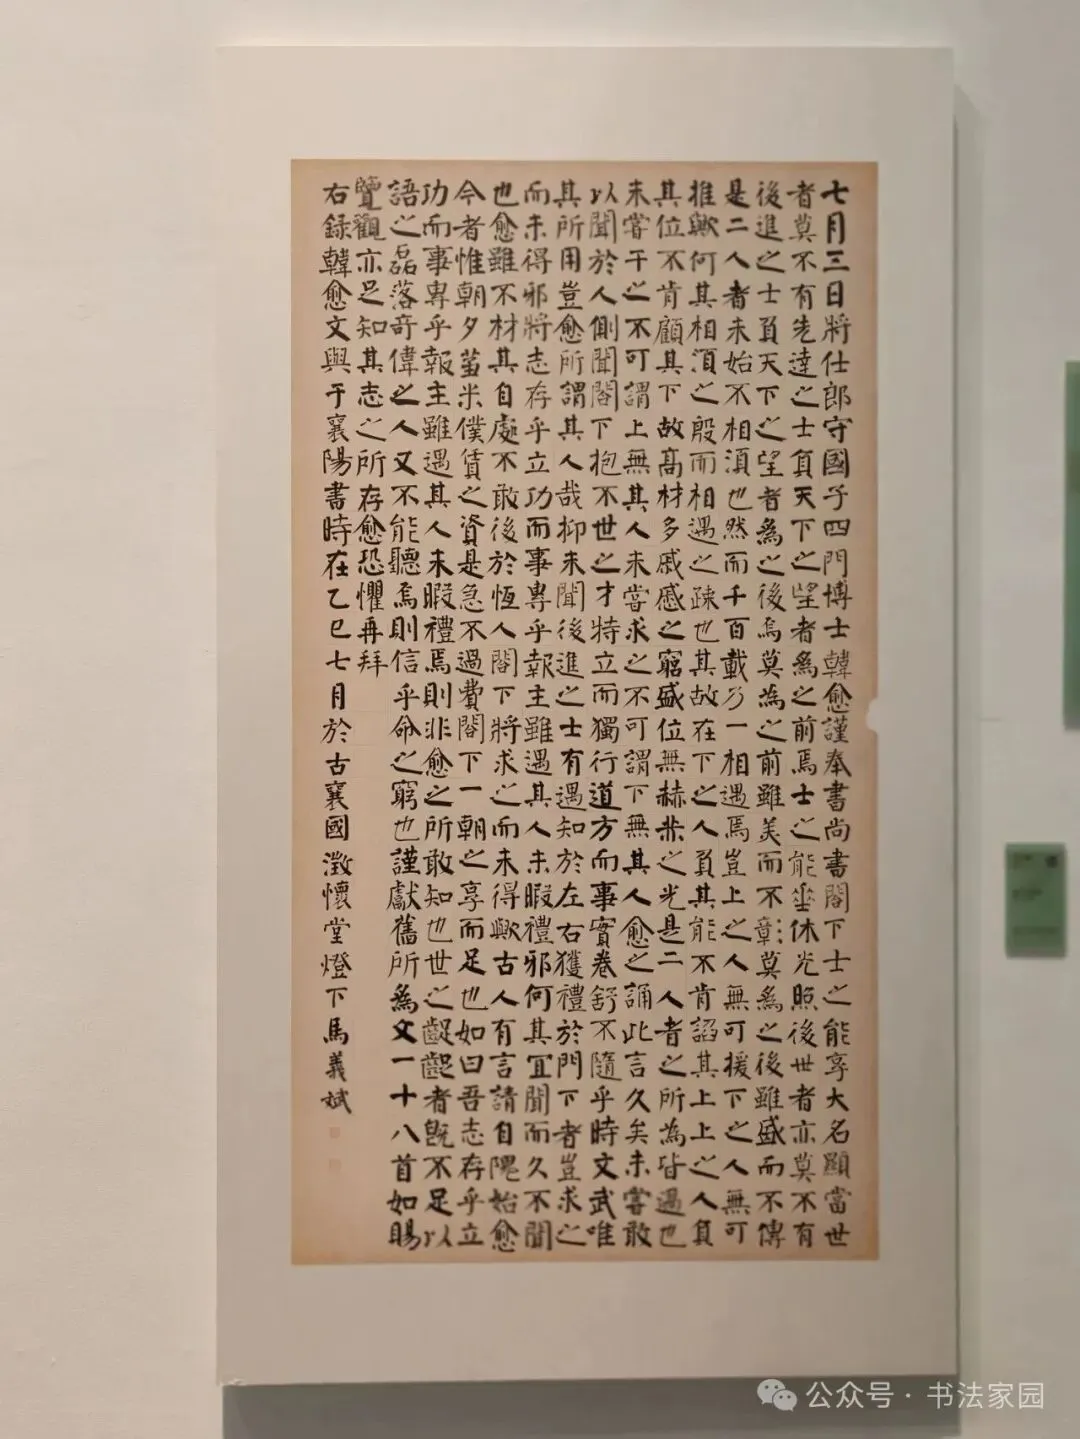 七月三日將仕郎守國子四門博士韓愈謹奉書尚書閣下士之能享大名顯當世
者莫不有先達之士負天下之望者爲之前焉士之能垂休光照後世者亦莫不有
後進之士負天下之望者爲之後焉莫為之前雖美而不彰莫爲之後雖盛而不傳
是二人者未始不相湏也然而千百載乃一相遇焉豈上之人無可援下之人無可
推歟何其相湏之殷而相遇之疎也其故在下之人負其能不肯諂其上上之人負
其位不肯顧其下故高材多戚慼之窮盛位無赫赫之光是二人者之所為皆過也
未嘗干之不可謂上無其人未嘗求之不可謂下無其人愈之誦此言久矣未嘗敢
以聞於人側聞閣下抱不世之才特立而獨行道方而事實卷舒不隨乎時文武唯
其所用豈愈所謂其人哉抑未聞後進之士有遇知於左右獲禮於門下者豈求之
而未得邪將志存乎立功而事專乎報主雖遇其人未暇禮邪何其宜聞而久不聞
也愈雖不材其自處不敢後於恆人閣下將求之而未得歟古人有言請自隗始愈
今者惟朝夕芻米僕賃之資是急不過費閣下一朝之享而足也如曰吾志存乎立
功而事專乎報主雖遇其人未暇禮焉則非愈之所敢知也世之齪齪者既不足以
語之磊落奇偉之人又不能聽焉則信乎命之窮也謹獻舊所爲文一十八首如賜
覽觀亦足知其志之所存愈恐懼再拜
右録韓愈文與于襄陽書時在乙巳七月於古襄國澂懷堂燈下馬義斌
公众号·书法家园